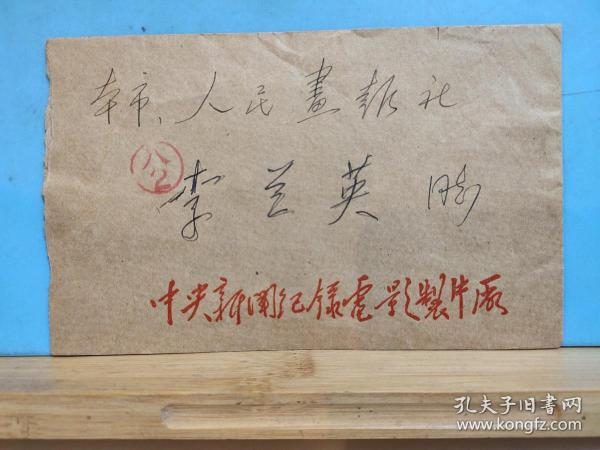 本市、人民畫報社
公
李兰英 同志
中央新聞纪錄電影製片厰
孔夫子旧書网
www.kongfz.com